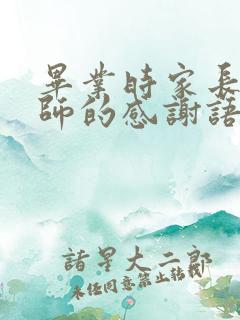 畢業時家長
師的感謝語
諸星大二郎
未任同意禁止轉載